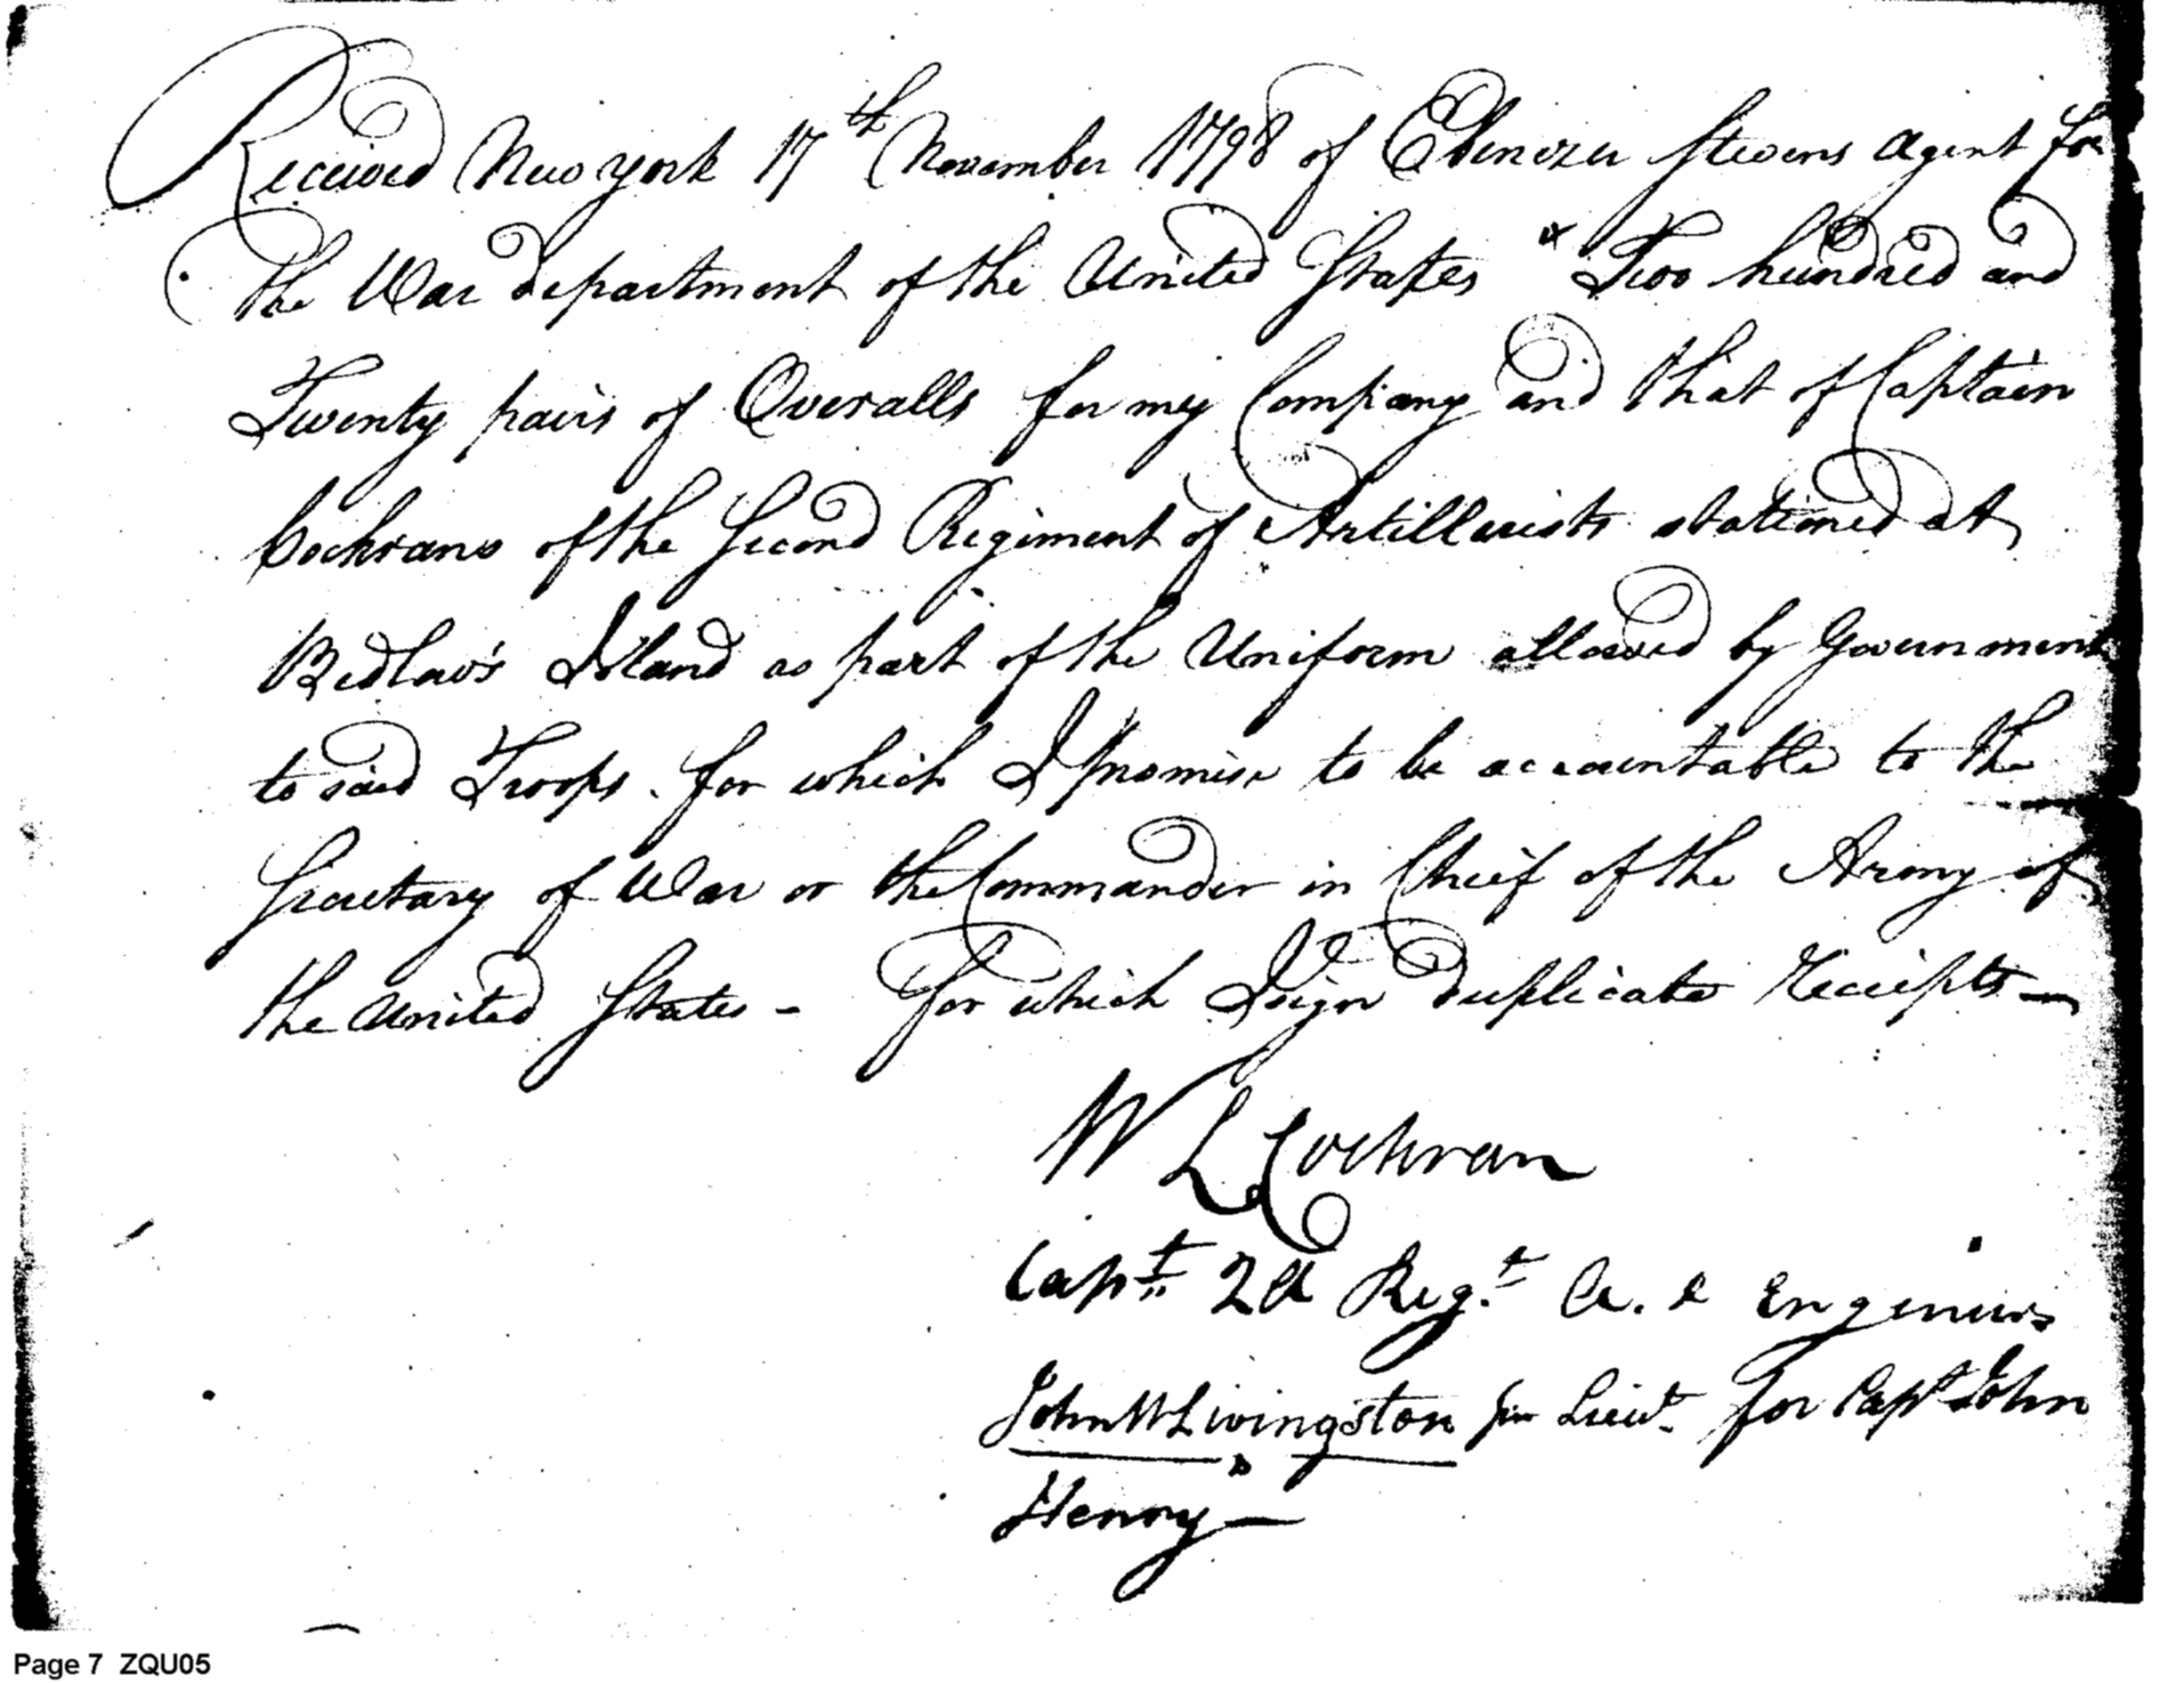 Received New york 17th November 1798 of Ebenezer Stevens agent for
the War department of the United States Two hundred and
Twenty pairs of Overalls for my Company and that of Captain
Cochrans of the Second Regiment of Artillerists stationed at
Bedlow's Island as part of the Uniform allowed by Government
to said Troops. for which I promise to be accountable to the
Secretary of War or the Commander in Chief of the Army of
the United States - For which I sign duplicate Receipts -
W L Cochran
Capt 2d Regt A. & Engeniers
John W Livingston Lieut for Capt John
Henry -
Page 7 ZQU05